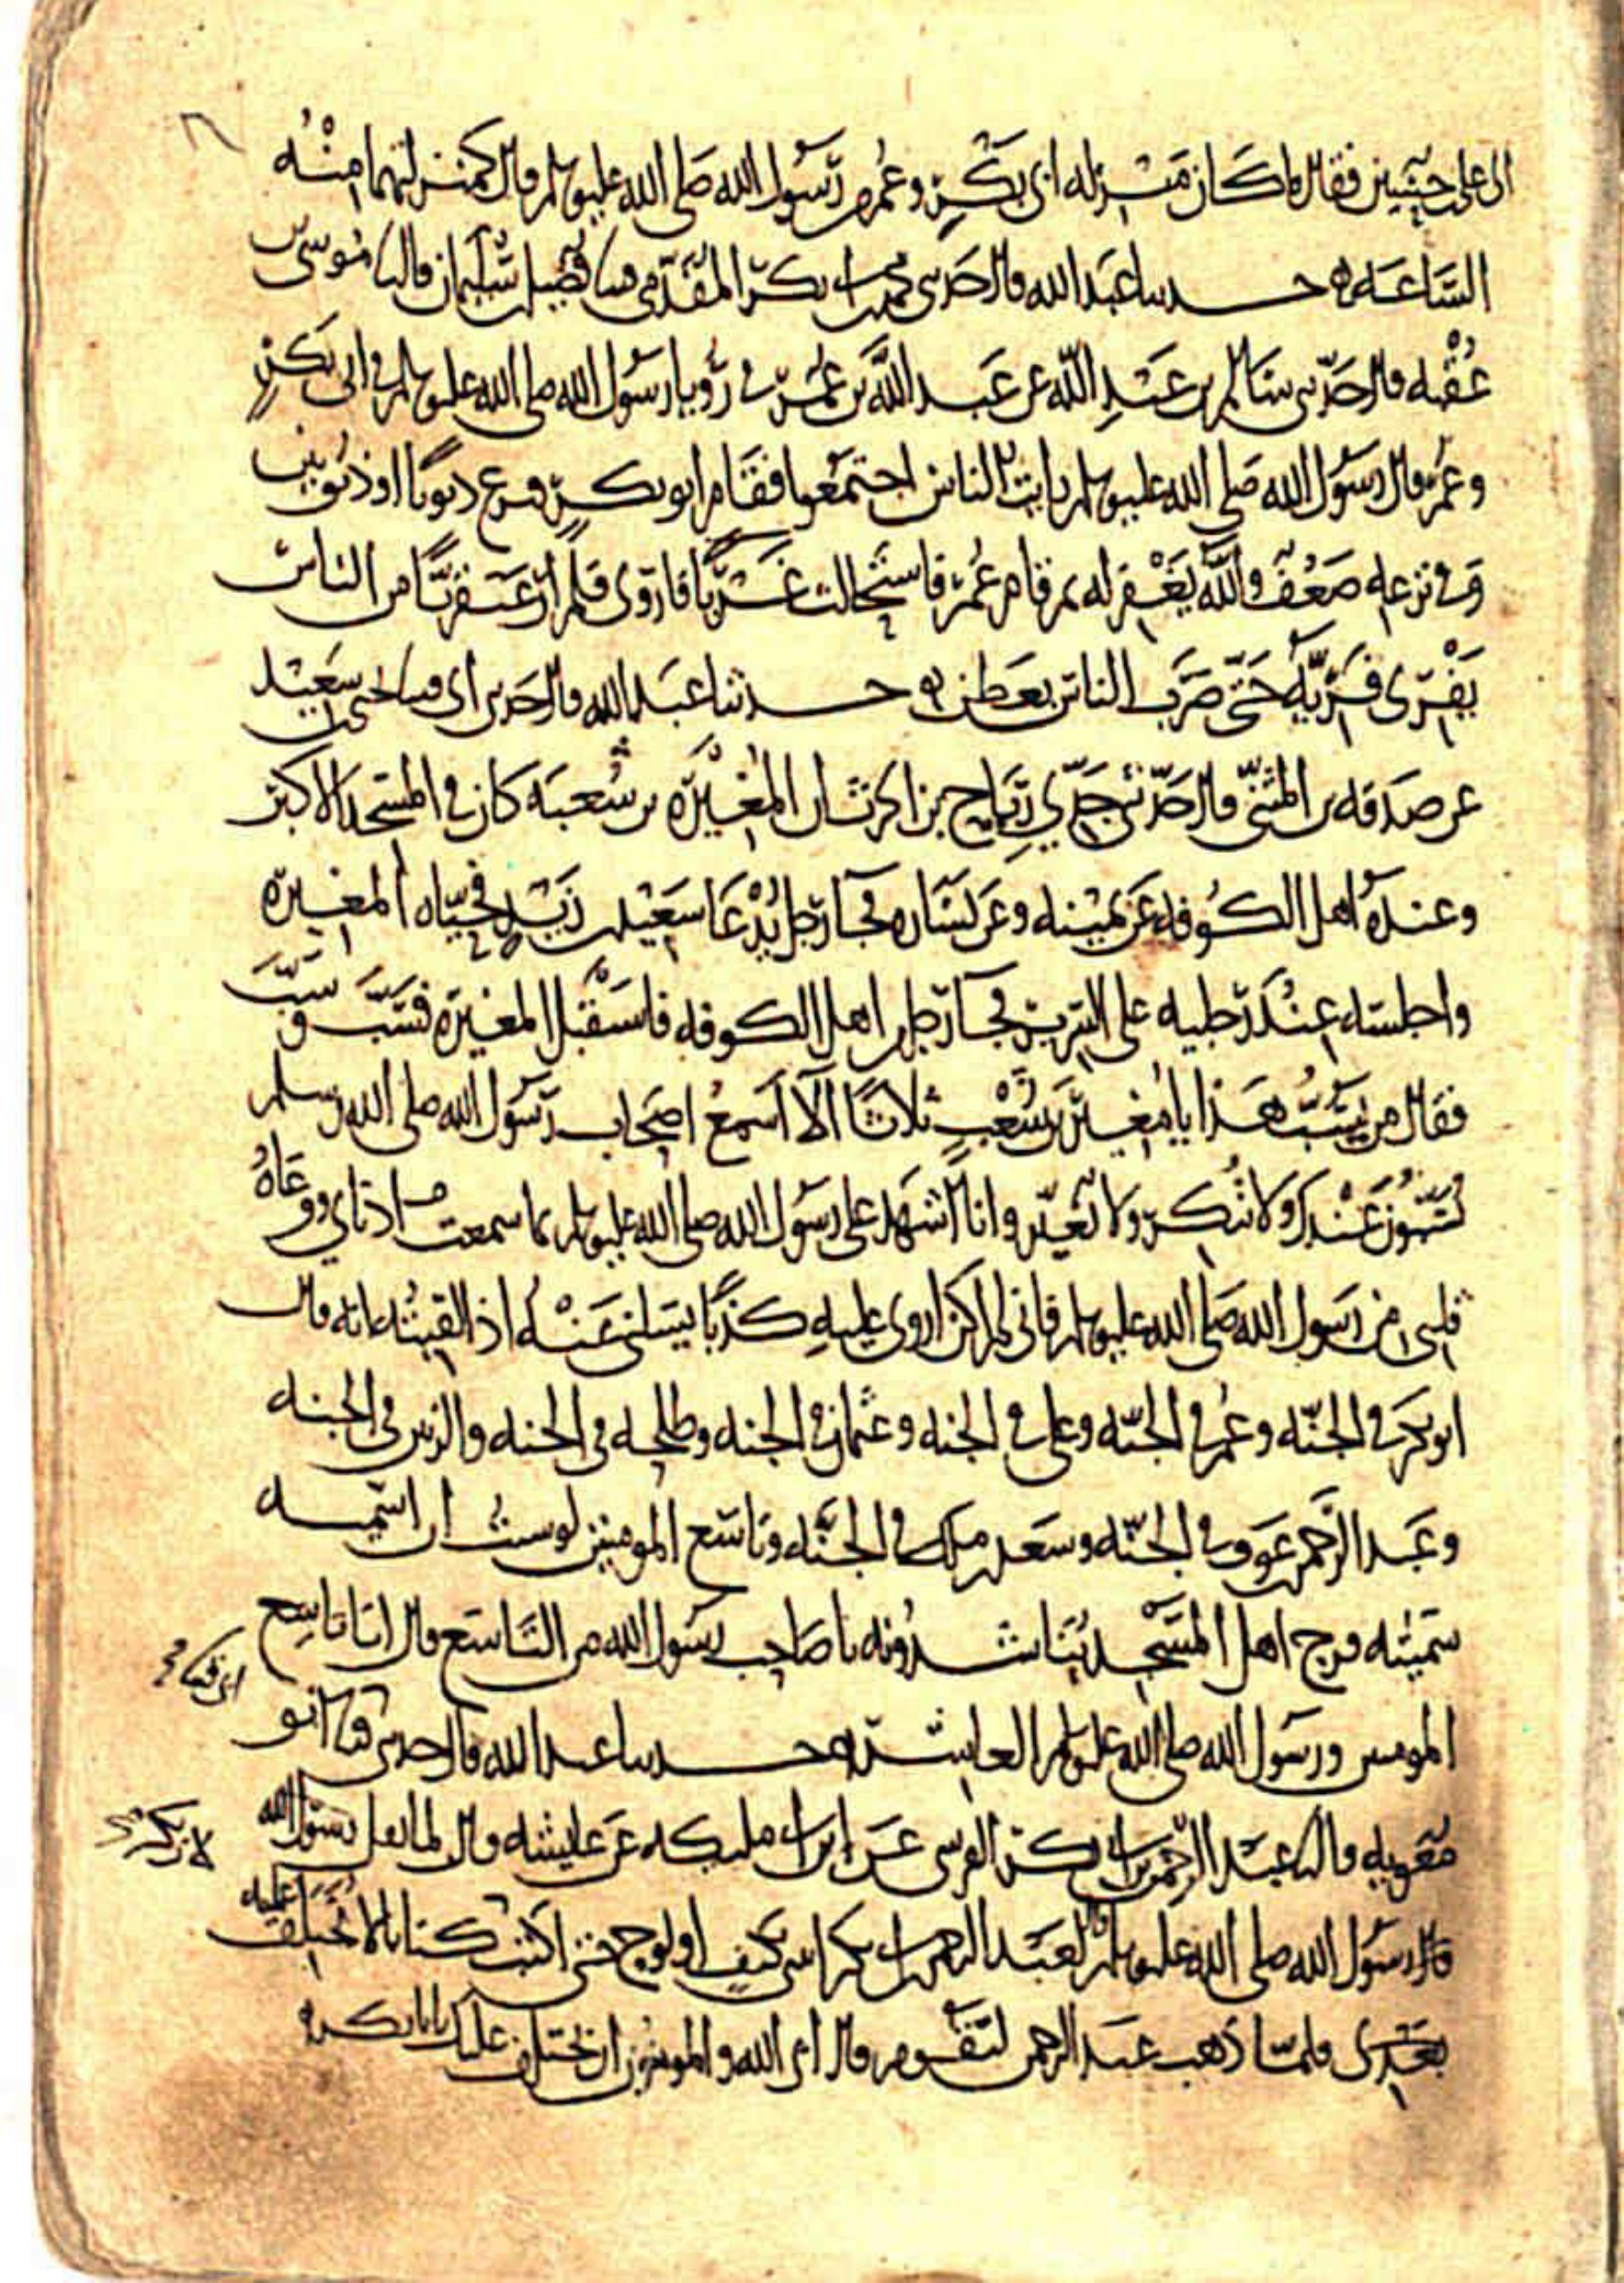 الى علي بن حسين فقال ما كان منزلة ابي بكر وعمر من رسول الله صلى الله عليه وسلم قال كمنزلتهما منه
الساعة ه حدثنا عبد الله قال حدثني محمد بن ابي بكر المقدمي قثنا فضيل بن سليمان قال نا موسى بن
عقبه قال حدثني سالم بن عبد الله عن عبد الله بن عمر في رؤيا رسول الله صلى الله عليه وسلم في ابي بكر
وعمر قال رسول الله صلى الله عليه وسلم رايت الناس اجتمعوا فقام ابو بكر فنزع ذنوبا او ذنوبين
وفي نزعه ضعف والله يغفر له ثم قام عمر فاستحالت غربا فاروى فلم ار عبقريا من الناس
يفري فريه حتى ضرب الناس بعطن ه حدثنا عبد الله قال حدثني ابي قثنا يحيى بن سعيد
عن صدقه بن المثنى قال حدثني جدي رياح بن الحرث ان المغيره بن شعبه كان في المسجد الاكبر
وعنده اهل الكوفه عن يمينه وعن يساره فجا رجل يدعا سعيد بن زيد فحياه المغيره
واجلسه عند رجليه على السرير فجا رجل من اهل الكوفه فاستقبل المغيره فسب وسب
فقال من يسب هذا يا مغير بن شعب ثلاثا الا اسمع اصحاب رسول الله صلى الله وسلم
يسبون عندك ولا تنكر ولا تغير وانا اشهد على رسول الله صلى الله عليه وسلم بما سمعت اذناي ووعاه
قلبي من رسول الله صلى الله عليه وسلم فاني لم اكن اروي عليه كذبا يسلني عنه اذا لقيته انه قال
ابو بكر في الجنه وعمر في الجنه وعلي في الجنه وعثمان في الجنه وطلحه في الجنه والزبير في الجنه
وعبد الرحمن بن عوف في الجنه وسعد بن ملك في الجنه وتاسع المومنين لو شيت ان اسميه
سميته فرج اهل المسجد يناشدونه يا صاحب رسول الله من التاسع قال انا تاسع
المومنين ورسول الله صلى الله عليه وسلم العاشر ه حدثنا عبد الله قال حدثني ابي قثنا ابو
معويه قال نا عبد الرحمن بن ابي بكر القرشي عن ابن ابي مليكه عن عايشه قال لما ثقل رسول الله
قال رسول الله صلى الله عليه وسلم لعبد الرحمن بن ابي بكر ايتني بكتف او لوح حتى اكتب كتابا لا يختلف عليه
بعدي فلما ذهب عبد الرحمن ليقوم قال ابى الله والمومنون ان يختلف عليك يا ابا بكر ه